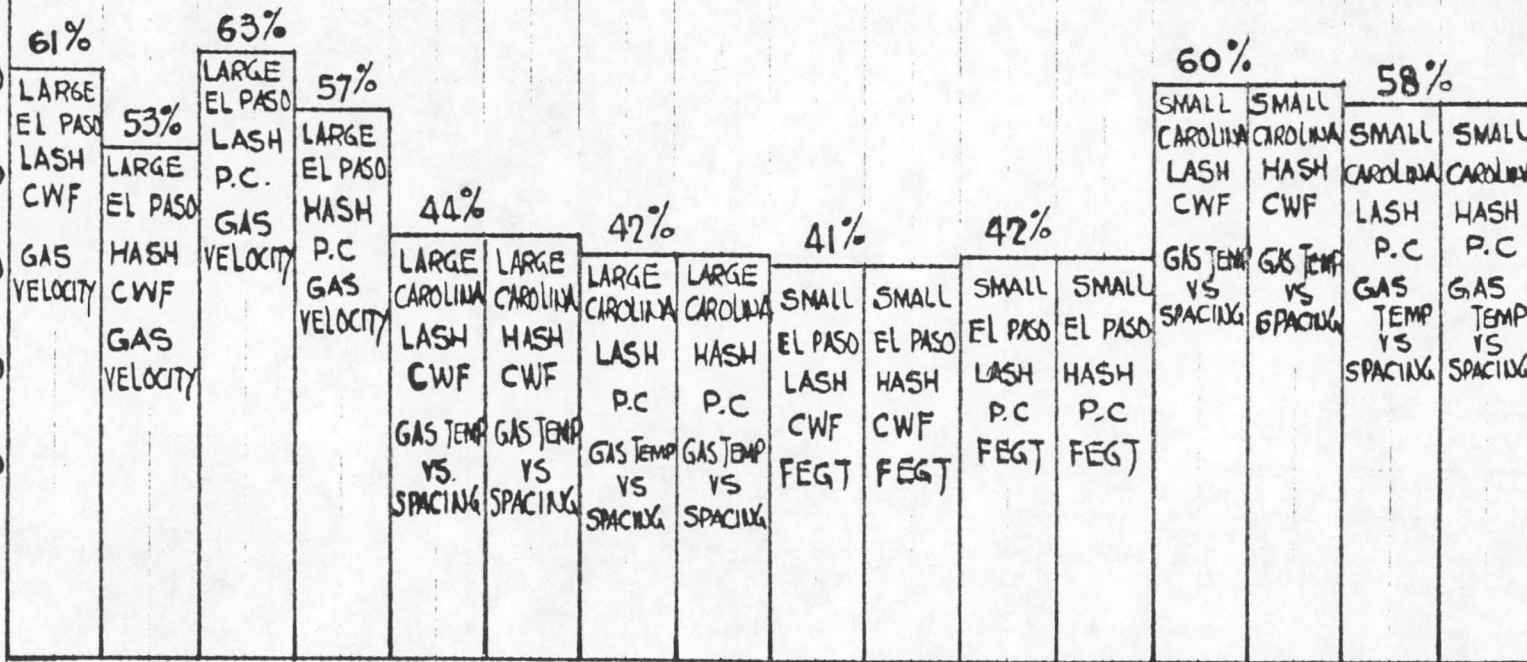 61%
LARGE
EL PASO
LASH
CWF
GAS
VELOCITY
53%
LARGE
EL PASO
HASH
CWF
GAS
VELOCITY
63%
LARGE
EL PASO
LASH
P.C.
GAS
VELOCITY
57%
LARGE
EL PASO
HASH
P.C
GAS
VELOCITY
44%
LARGE
CAROLINA
LASH
CWF
GAS TEMP
VS.
SPACING
LARGE
CAROLINA
HASH
CWF
GAS TEMP
VS
SPACING
42%
LARGE
CAROLINA
LASH
P.C
GAS TEMP
VS
SPACING
LARGE
CAROLINA
HASH
P.C
GAS TEMP
VS
SPACING
41%
SMALL
EL PASO
LASH
CWF
FEGT
SMALL
EL PASO
HASH
CWF
FEGT
42%
SMALL
EL PASO
LASH
P.C
FEGT
SMALL
EL PASO
HASH
P.C
FEGT
60%
SMALL
CAROLINA
LASH
CWF
GAS TEMP
VS
SPACING
SMALL
CAROLINA
HASH
CWF
GAS TEMP
VS
SPACING
58%
SMALL
CAROLINA
LASH
P.C
GAS
TEMP
VS
SPACING
SMALL
CAROLINA
HASH
P.C
GAS
TEMP
VS
SPACING